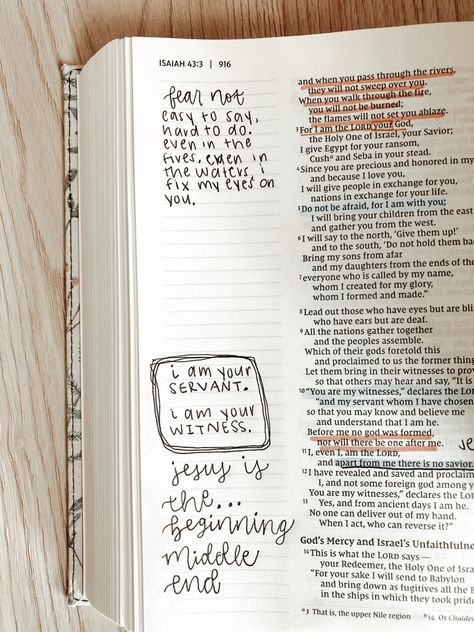 ISAIAH 43:3 | 916
fear not
easy to say,
hard to do.
even in the
fires, even in
the waters, i
fix my eyes on
you.
i am your
SERVANT.
i am your
WITNESS.
jesus is
the...
beginning
middle
end
and when you pass through the rivers,
they will not sweep over you.
When you walk through the fire,
you will not be burned;
the flames will not set you ablaze.
3 For I am the LORD your God,
the Holy One of Israel, your Savior;
I give Egypt for your ransom,
Cush a and Seba in your stead.
4 Since you are precious and honored in my
and because I love you,
I will give people in exchange for you,
nations in exchange for your life.
5 Do not be afraid, for I am with you;
I will bring your children from the east
and gather you from the west.
6 I will say to the north, ‘Give them up!’
and to the south, ‘Do not hold them back
Bring my sons from afar
and my daughters from the ends of the
7 everyone who is called by my name,
whom I created for my glory,
whom I formed and made.”
8 Lead out those who have eyes but are bli
who have ears but are deaf.
9 All the nations gather together
and the peoples assemble.
Which of their gods foretold this
and proclaimed to us the former things
Let them bring in their witnesses to prov
so that others may hear and say, “It is
10 “You are my witnesses,” declares the L
“and my servant whom I have chosen
so that you may know and believe me
and understand that I am he.
Before me no god was formed,
nor will there be one after me.
11 I, even I, am the LORD,
and apart from me there is no savior.
12 I have revealed and saved and proclaim
I, and not some foreign god among y
You are my witnesses,” declares the LO
13 Yes, and from ancient days I am he.
No one can deliver out of my hand.
When I act, who can reverse it?”
God’s Mercy and Israel’s Unfaithfulne
14 This is what the LORD says —
your Redeemer, the Holy One of Isra
“For your sake I will send to Babylon
and bring down as fugitives all the B
in the ships in which they took pride
a 3 That is, the upper Nile region b 14 Or Chalde